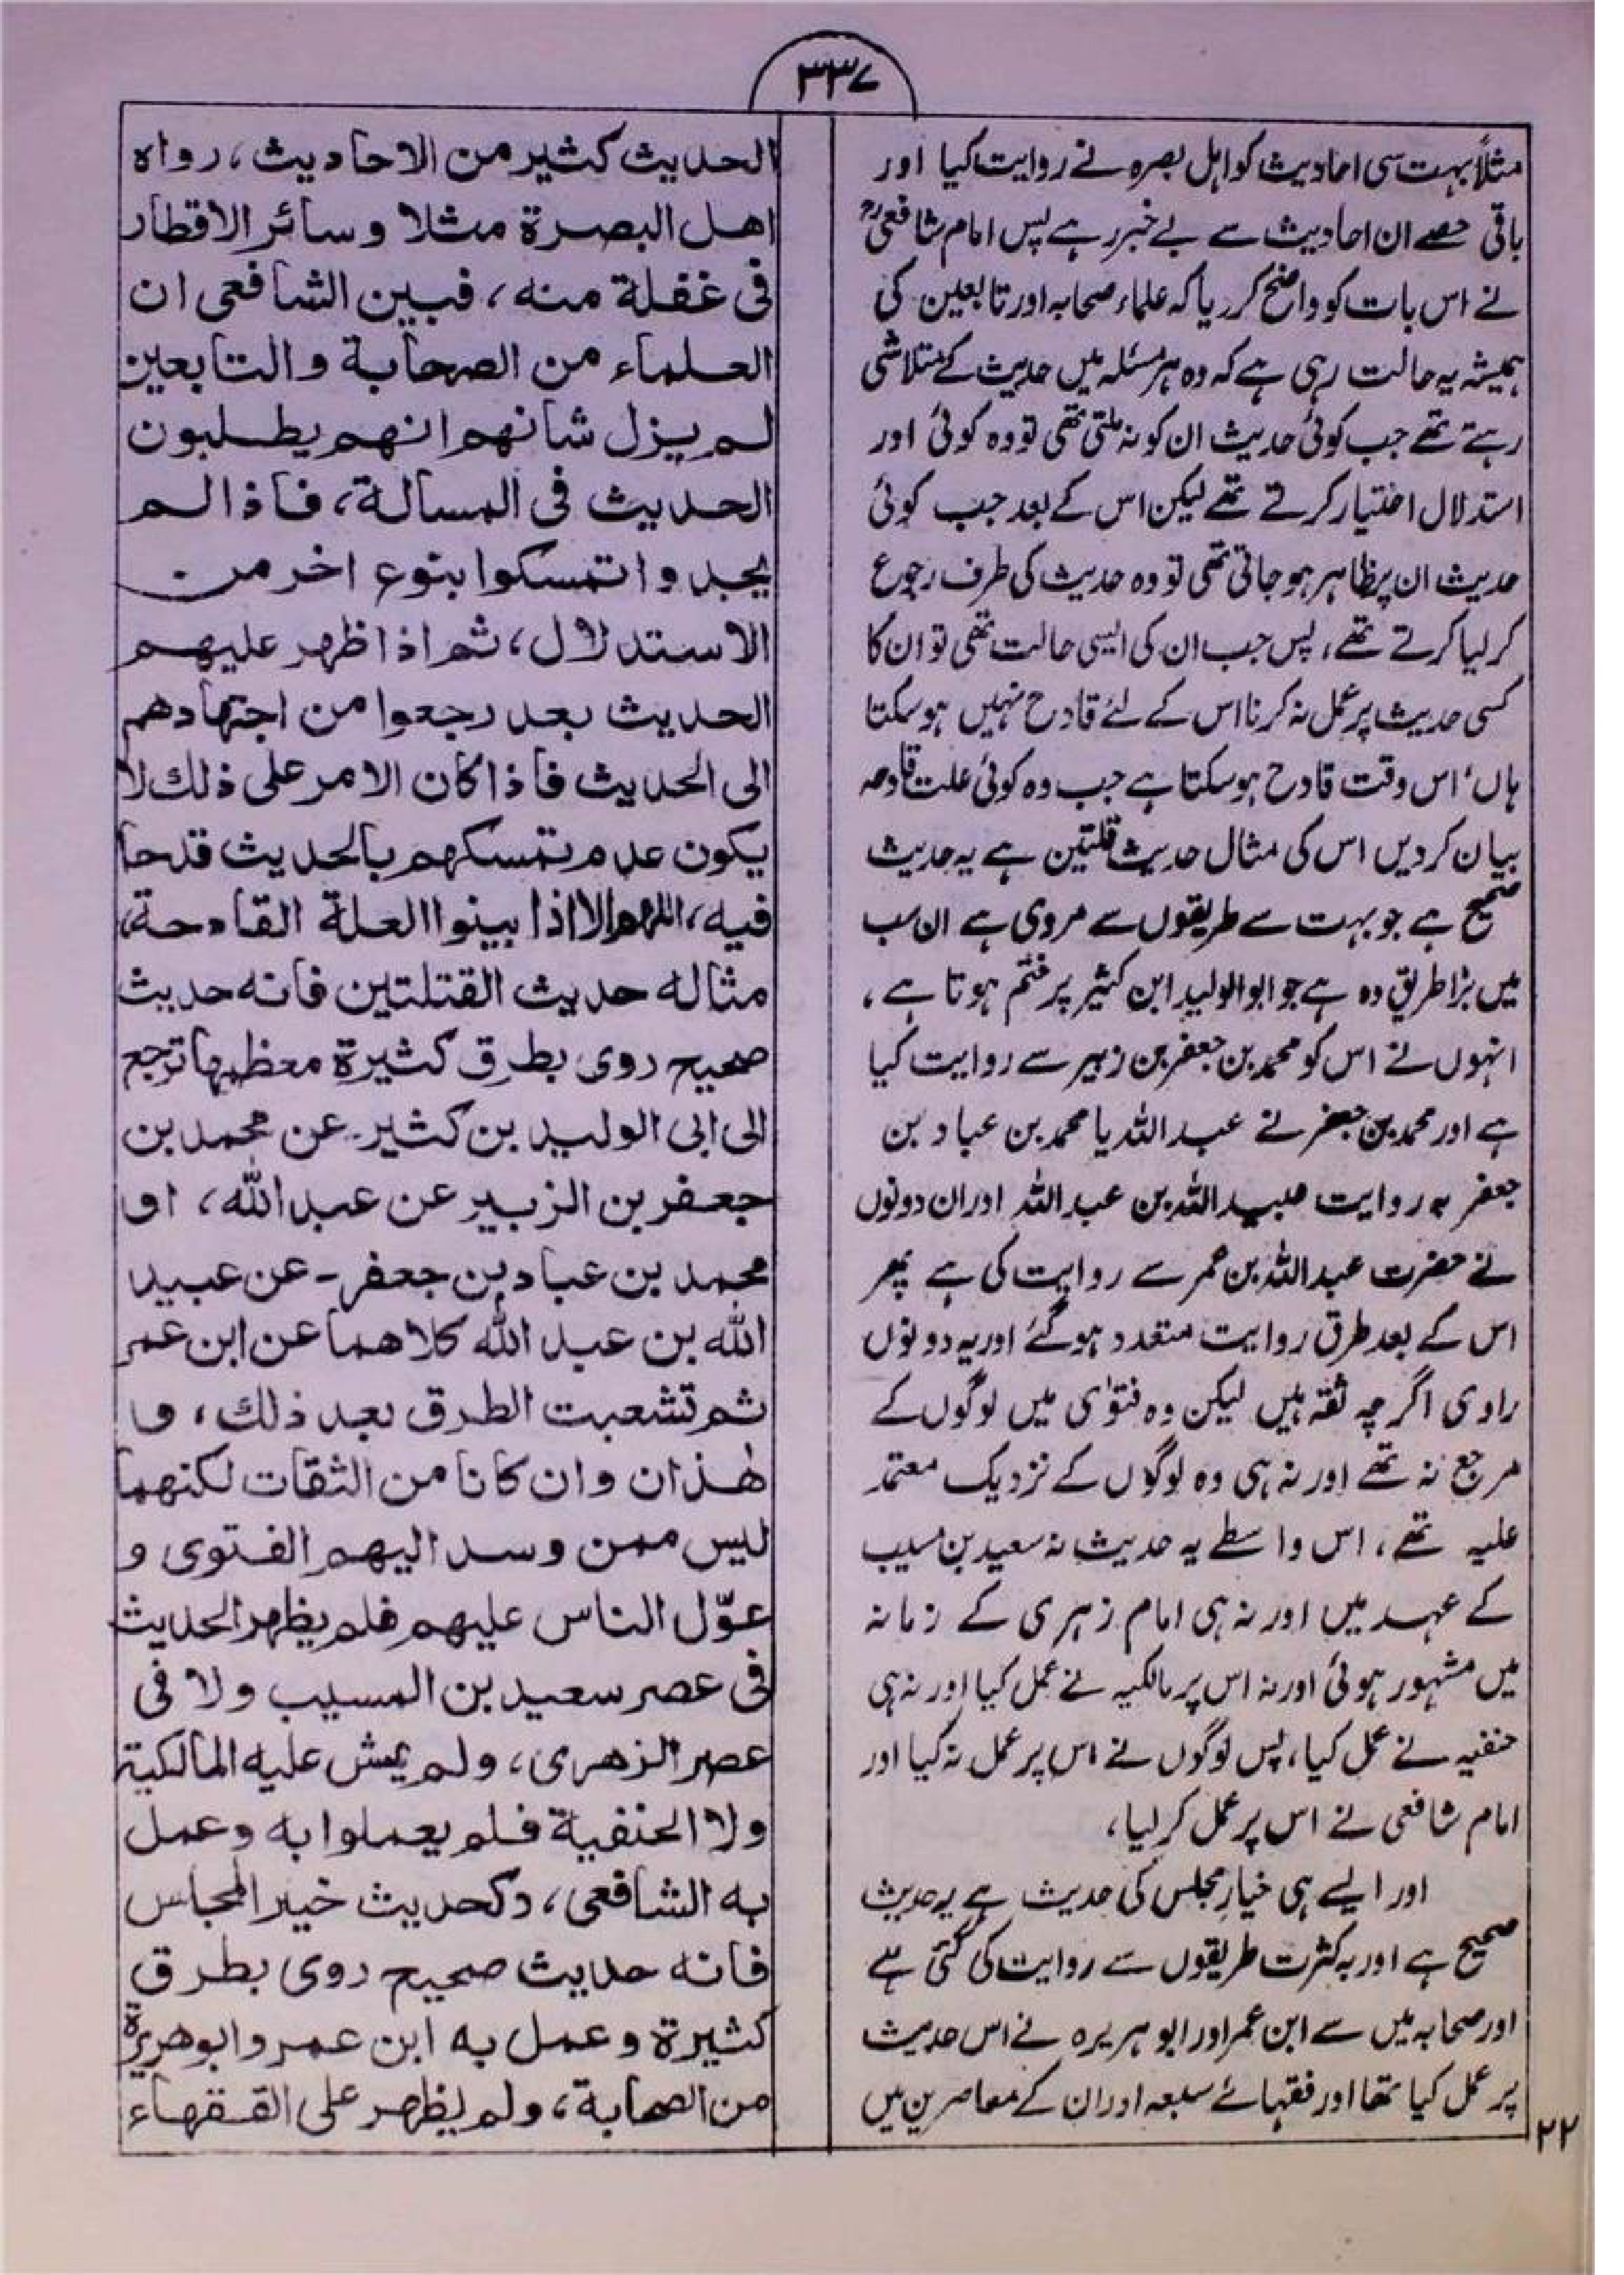 ۳۳۷
مثلاً بہت سی احادیث کو اہل بصرہ نے روایت کیا اور
باقی حصے ان احادیث سے بے خبر رہے پس امام شافعیؒ
نے اس بات کو واضح کر دیا کہ علماء صحابہ اور تابعین کی
ہمیشہ یہ حالت رہی ہے کہ وہ ہر مسئلہ میں حدیث کے متلاشی
رہتے تھے جب کوئی حدیث ان کو نہ ملتی تھی تو وہ کوئی اور
استدلال اختیار کرتے تھے لیکن اس کے بعد جب کوئی
حدیث ان پر ظاہر ہو جاتی تھی تو وہ حدیث کی طرف رجوع
کر لیا کرتے تھے، پس جب ان کی ایسی حالت تھی تو ان کا
کسی حدیث پر عمل نہ کرنا اس کے لئے قادح نہیں ہو سکتا
ہاں، اس وقت قادح ہو سکتا ہے جب وہ کوئی علت قادحہ
بیان کر دیں اس کی مثال حدیث قلتین ہے یہ حدیث
صحیح ہے جو بہت سے طریقوں سے مروی ہے ان سب
میں بڑا طریق وہ ہے جو ابوالولید ابن کثیر پر ختم ہوتا ہے،
انہوں نے اس کو محمد بن جعفر بن زبیر سے روایت کیا
ہے اور محمد بن جعفر نے عبد اللہ یا محمد بن عباد بن
جعفر بہ روایت عبید اللہ بن عبد اللہ اور ان دونوں
نے حضرت عبد اللہ بن عمر سے روایت کی ہے پھر
اس کے بعد طرق روایت متعدد ہو گئے اور یہ دونوں
راوی اگر چہ ثقہ ہیں لیکن وہ فتوٰی میں لوگوں کے
مرجع نہ تھے اور نہ ہی وہ لوگوں کے نزدیک معتمد
علیہ تھے، اس واسطے یہ حدیث نہ سعید بن مسیب
کے عہد میں اور نہ ہی امام زہری کے زمانہ
میں مشہور ہوئی اور نہ اس پر مالکیہ نے عمل کیا اور نہ ہی
حنفیہ نے عمل کیا، پس لوگوں نے اس پر عمل نہ کیا اور
امام شافعی نے اس پر عمل کر لیا،
اور ایسے ہی خیارِ مجلس کی حدیث ہے یہ حدیث
صحیح ہے اور بہ کثرت طریقوں سے روایت کی گئی ہے
اور صحابہ میں سے ابن عمر اور ابو ہریرہ نے اس حدیث
پر عمل کیا تھا اور فقہائے سبعہ اور ان کے معاصرین میں
۲۲
الحديث كثير من الاحاديث، رواه
اهل البصرة مثلا وسائر الاقطار
فى غفلة منه، فبين الشافعى ان
العلماء من الصحابة والتابعين
لم يزل شانهم انهم يطلبون
الحديث فى المسالة، فاذا لم
يجدوا تمسكوا بنوع اخر من
الاستدلال، ثم اذا ظهر عليهم
الحديث بعد رجعوا من اجتهادهم
الى الحديث فاذا كان الامر على ذلك لا
يكون عدم تمسكهم بالحديث قدحا
فيه، اللهم الا اذا بينوا العلة القادحة،
مثاله حديث القتلتين فانه حديث
صحيح روى بطرق كثيرة معظمها ترجع
الى ابى الوليد بن كثير عن محمد بن
جعفر بن الزبير عن عبد الله، او
محمد بن عباد بن جعفر - عن عبيد
الله بن عبد الله كلاهما عن ابن عمر
ثم تشعبت الطرق بعد ذلك، و
هٰذان وان كانا من الثقات لكنهما
ليس ممن وسد اليهم الفتوى و
عوّل الناس عليهم فلم يظهر الحديث
فى عصر سعيد بن المسيب ولا فى
عصر الزهرى، ولم يمش عليه المالكية
ولا الحنفية فلم يعملوا به وعمل
به الشافعى، وكحديث خيار المجلس
فانه حديث صحيح روى بطرق
كثيرة وعمل به ابن عمر وابو هريرة
من الصحابة، ولم يظهر على الفقهاء